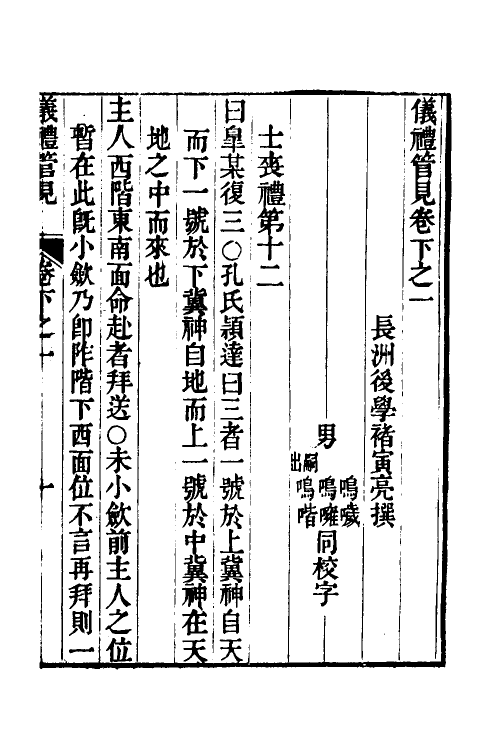 儀禮管見卷下之一
長洲後學褚寅亮撰
男
鳴噦
鳴㘙
嗣出鳴喈
同校字
士喪禮第十二
曰臯某復三○孔氏頴達曰三者一號於上冀神自天
而下一號於下冀神自地而上一號於中冀神在天
地之中而來也
主人西階東南面命赴者拜送○未小斂前主人之位
暫在此旣小斂乃卽阼階下西面位不言再拜則一
儀禮管見
卷下之一
一